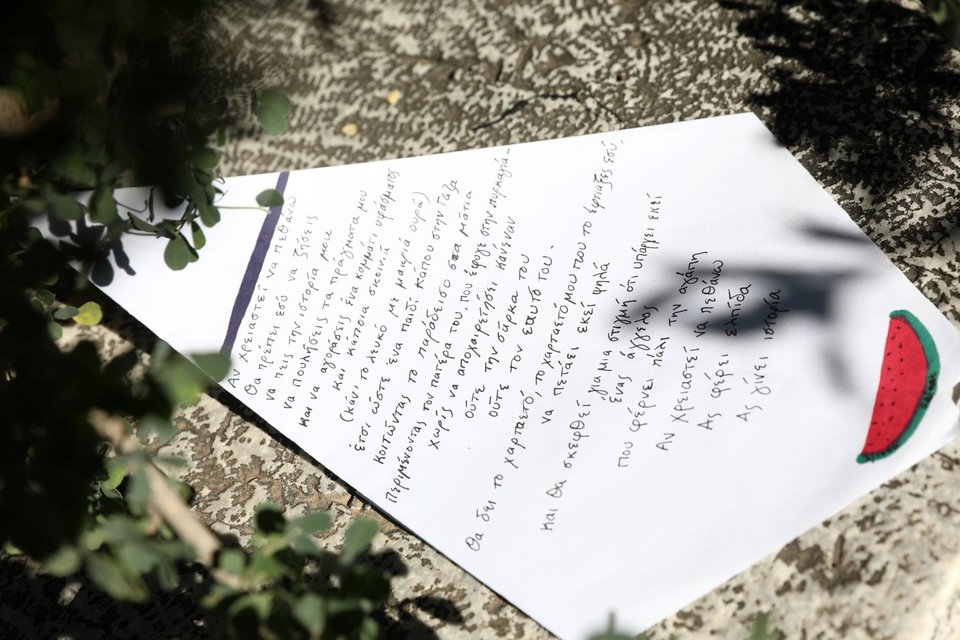 Αν χρειαστεί να πεθάνω
Θα πρέπει εσύ να ζήσεις
να πεις την ιστορία μου
να πουλήσεις τα πράγματα μου
και να αγοράσεις ένα κομμάτι υφάσματος
και κάποια σκοινιά
(καν' το λευκό με μακριά ουρά)
έτσι ώστε ένα παιδί κάπου στην Γάζα
κοιτώντας το παράδεισο στα μάτια
περιμένοντας τον πατέρα του, που έφυγε στην πυρκαγιά -
χωρίς να αποχαιρετήσει κανέναν
ούτε την σάρκα του
ούτε τον εαυτό του -
Θα δει το χαρταετό, το χαρταετό μου που το έφτιαξες εσύ,
να πετάει εκεί ψηλά
και θα σκεφθεί για μια στιγμή ότι υπάρχει εκεί
ένας άγγελος
που φέρνει πάλι την αγάπη
Αν χρειαστεί να πεθάνω
Ας φέρει ελπίδα
Ας γίνει ιστορία